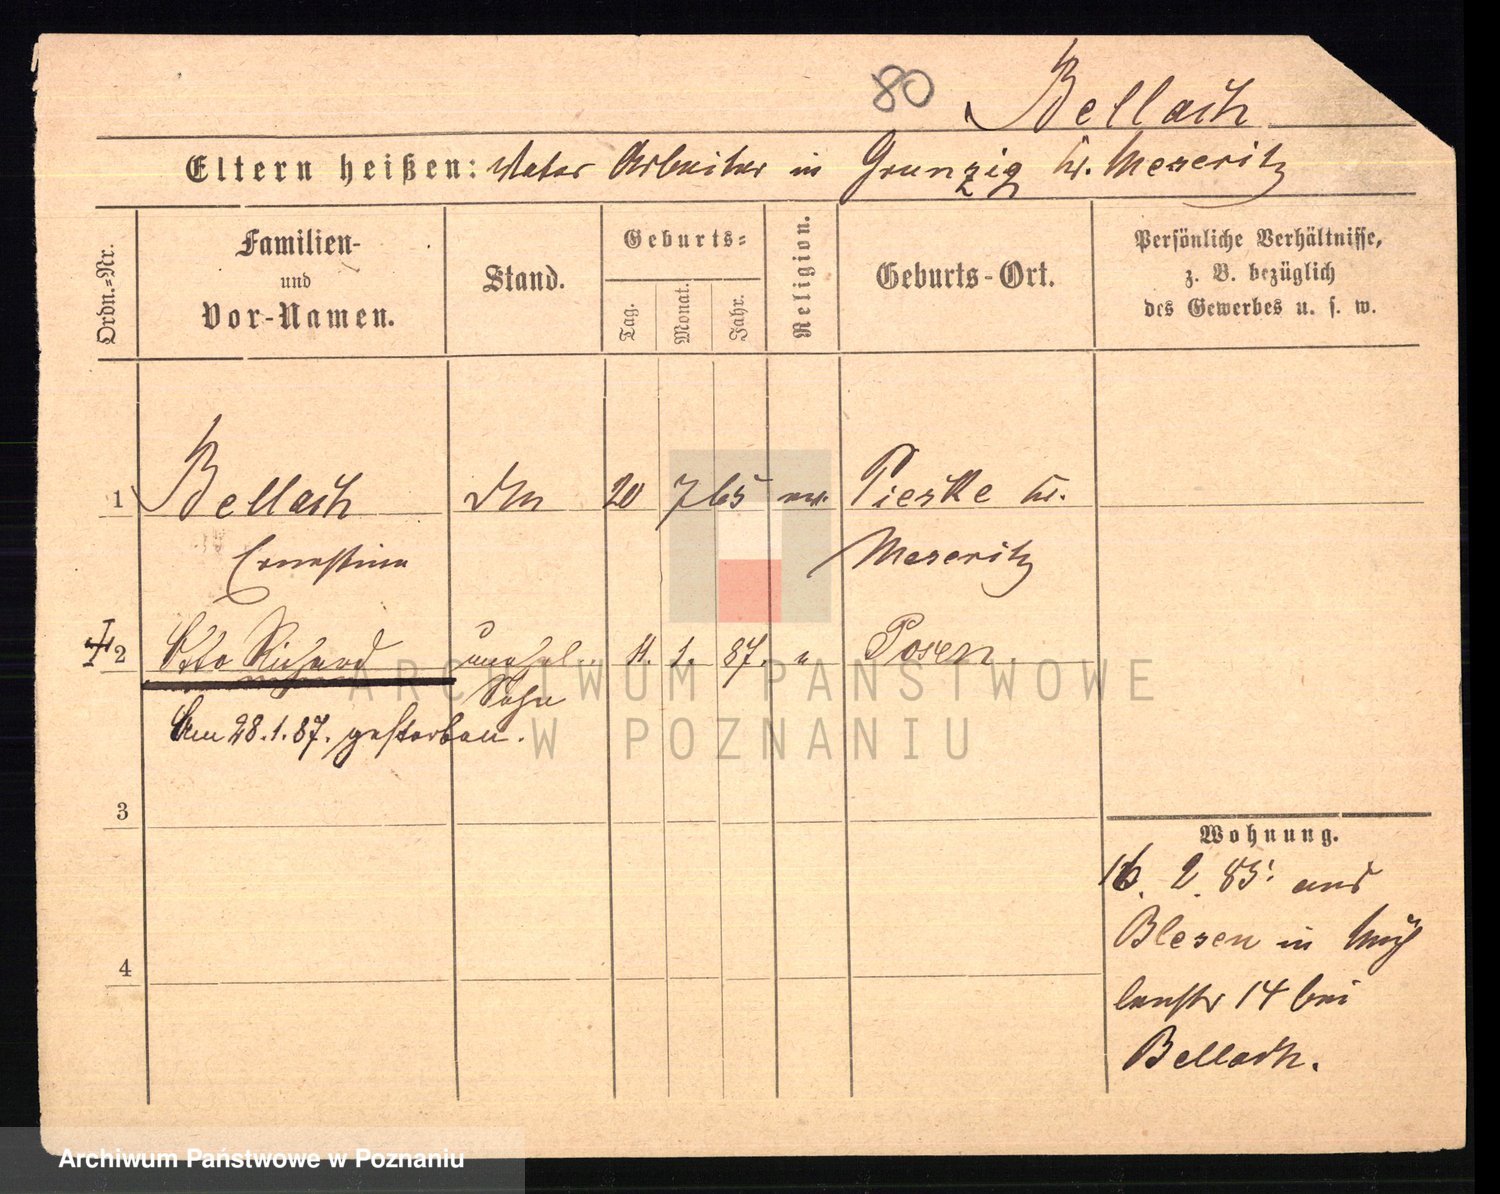 80
Bellach
Eltern heißen: Vater Arbeiter in Grunzig Kr. Meseritz
Ordn.=Nr.
Familien-
und
Vor-Namen.
Stand.
Geburts=
Tag.
Monat.
Jahr.
Religion.
Geburts-Ort.
Persönliche Verhältnisse,
z. B. bezüglich
des Gewerbes u. s. w.
1 Bellach 20 7 65 Pieske Kr.
Ernestine Meseritz
2 Otto Richard unehel. 11. 1. 87. " Posen
Sohn
Am 28.1.87. gestorben.
3
Wohnung.
16. 2. 85. aus
Blesen in Müh
lenstr 14 bei
Bellach.
4
ARCHIWUM PAŃSTWOWE
W POZNANIU
Archiwum Państwowe w Poznaniu